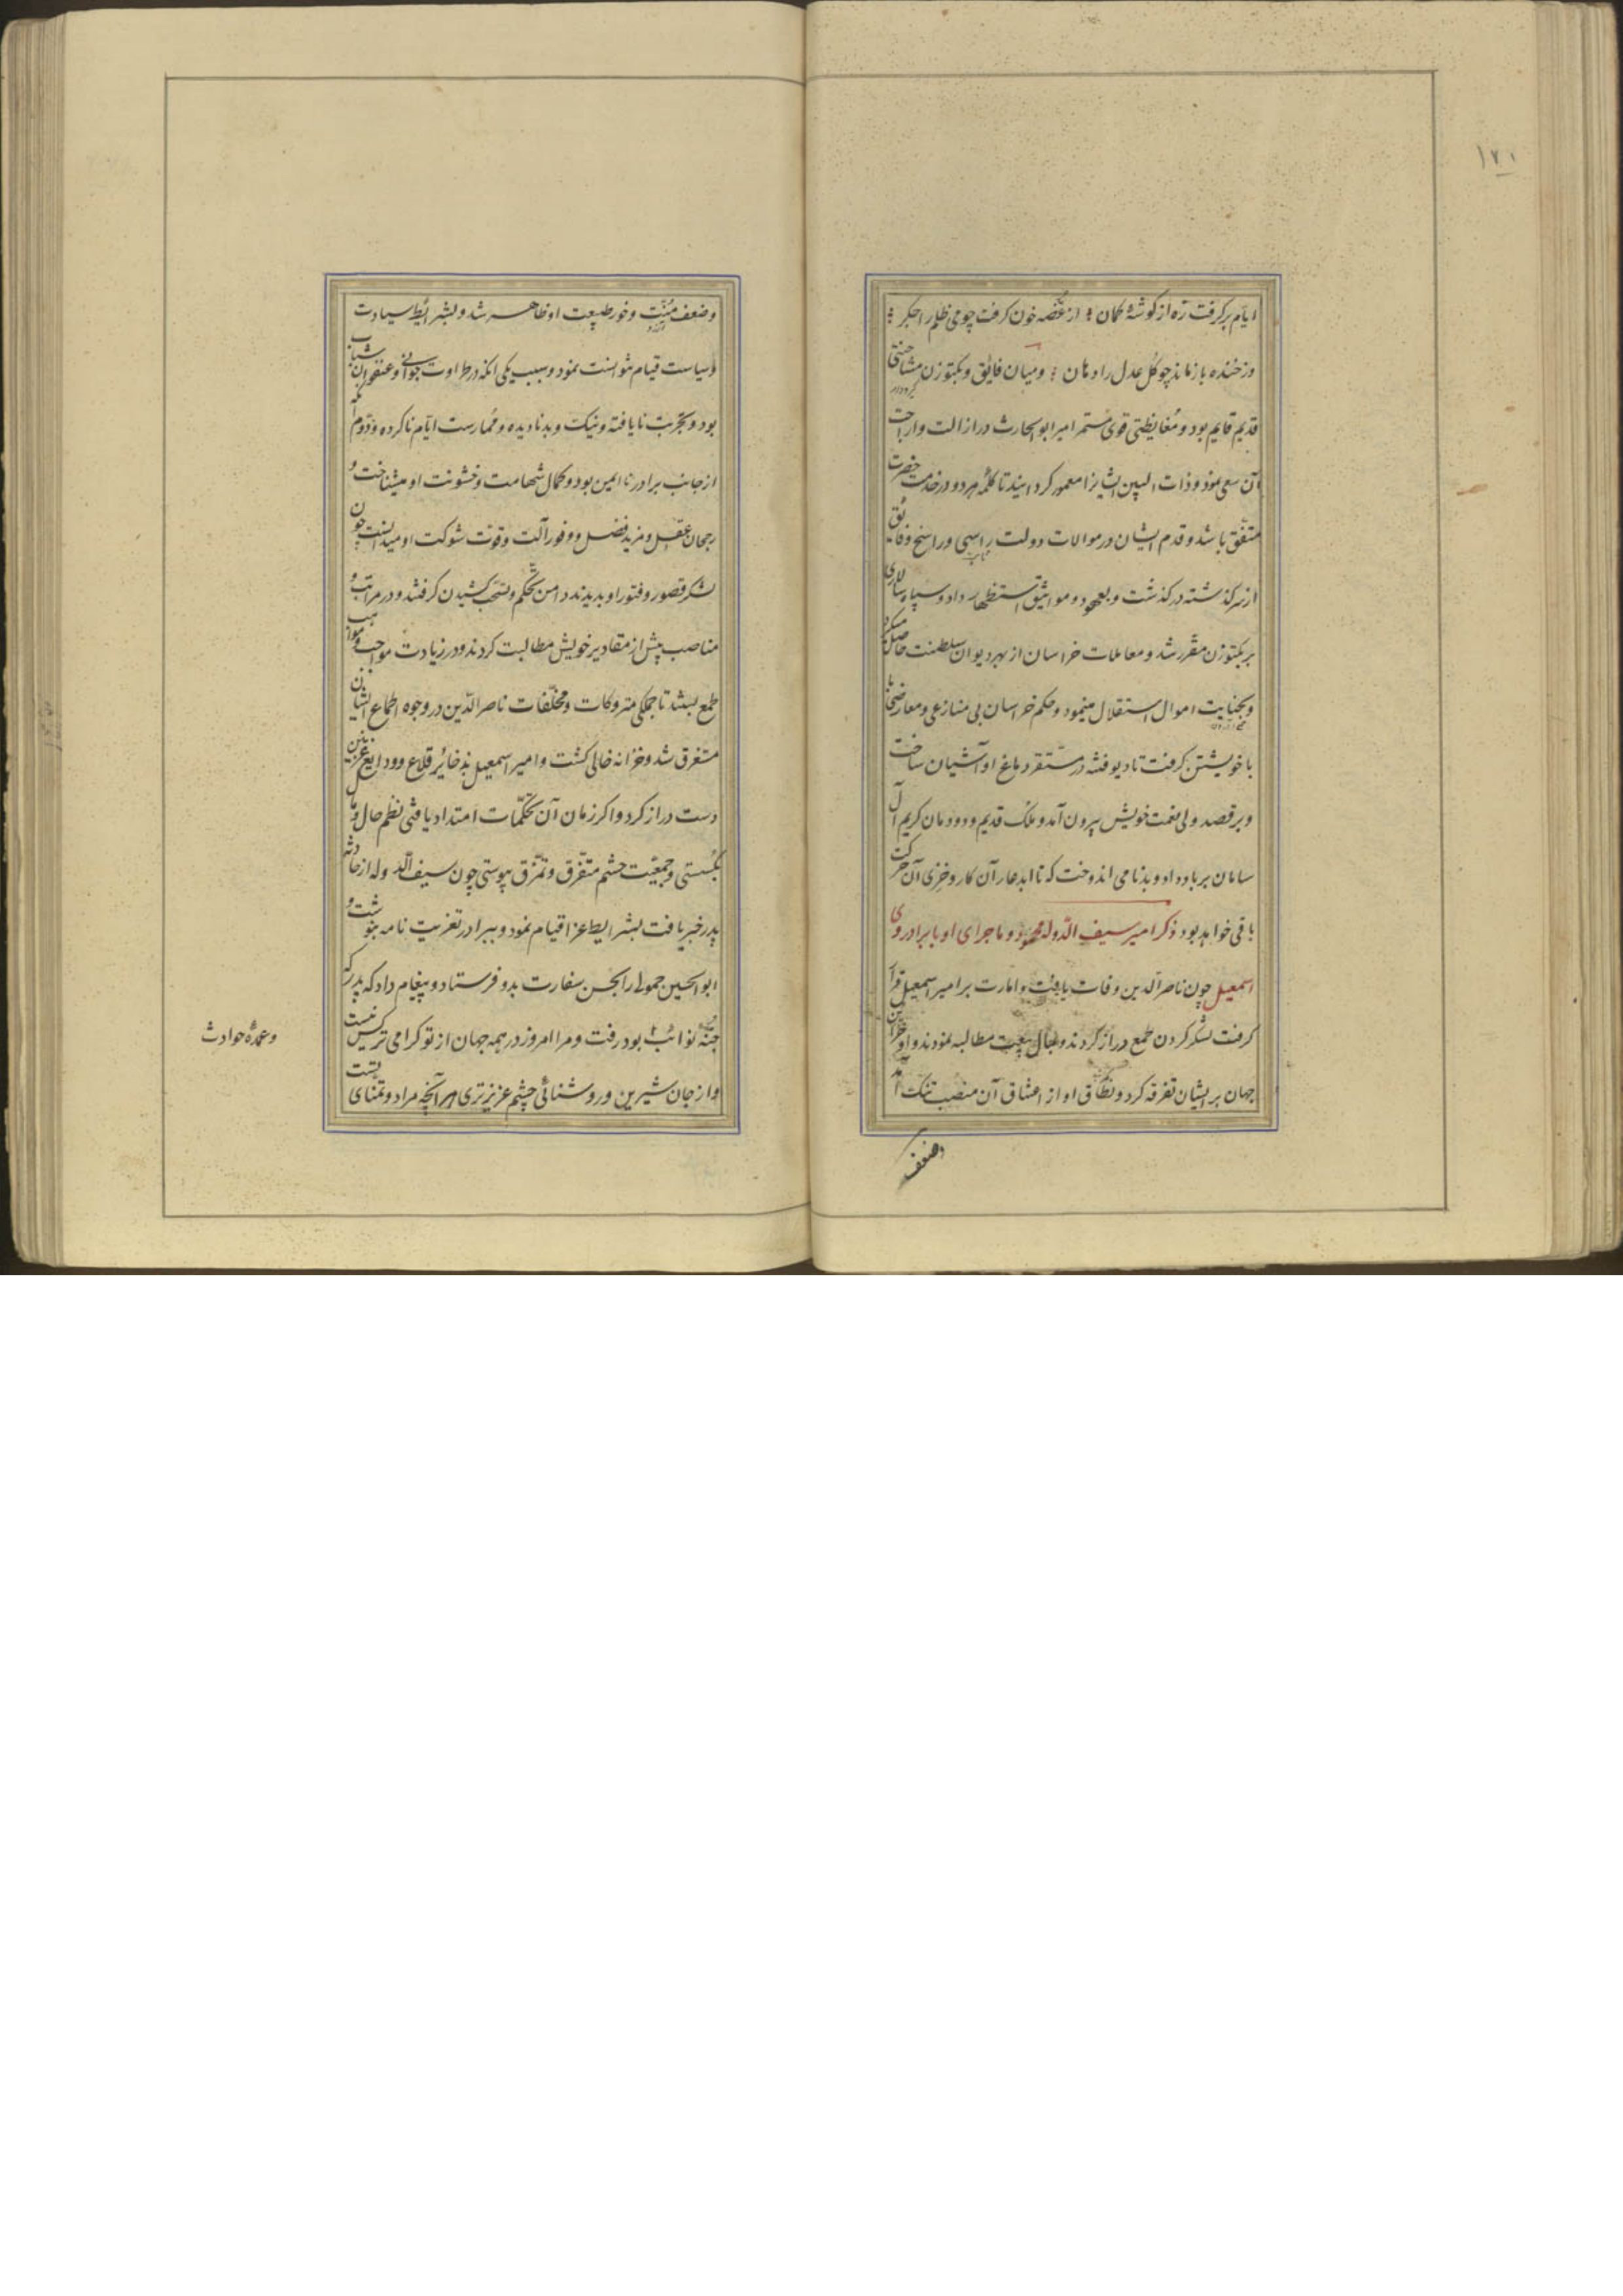 ۱۷۱
ایام برگرفت زه از گوشهٔ کمان ؛ از غصه خون گرفت چو می ظلم را جگر ؛
وز خنده باز ماند چو گل عدل را دهان ؛ و میان فایق و بکتوزن مشاحنتی
قدیم قایم بود و مغایظتی قوی مستمر امیر ابوالحارث در ازالت و ازاحت
آن سعی نمود و ذات البین ایشانرا معمور گردانید تا کلمهٔ هر دو در خدمت حضرت
متفق باشد و قدم ایشان در موالات دولت راسی و راسخ و فائق
از سر گذشته در گذشت و بعهود و مواثیق استظهار داد و سپاه سالاری
بر بکتوزن مقرر شد و معاملات خراسان از بهر دیوان سلطنت حاصل میکرد
و بجنایت اموال استقلال مینمود و حکم خراسان بی منازعی و معارضی
با خویشتن گرفت تا دیو فتنه در مستقر دماغ او آشیان ساخت
و بر قصد ولی نعمت خویش بیرون آمد و ملک قدیم و دودمان کریم آل
سامان بر باد داد و بدنامی اندوخت که تا ابد عار آن کار و خزی آن حرکت
باقی خواهد بود ذکر امیر سیف الدوله محمود و ماجرای او با برادر وی
اسمعیل چون ناصرالدین وفات یافت و امارت بر امیر اسمعیل قرار
گرفت لشکر گردن طمع دراز کردند و بمال بیعت مطالبه نمودند و او خزاین
جهان بر ایشان تفرقه کرد و نطاق او از اعتناق آن منصب تنگ آمد
وضعف
وضعف منّت و خور طبیعت او ظاهر شد و بشرایط سیادت
و سیاست قیام نتوانست نمود و سبب یکی آنکه در طراوت جوانی و عنفوان شباب
بود و تجربت نایافته و نیک و بد نادیده و ممارست ایام ناکرده و دوم آنکه
از جانب برادر نا ایمن بود و کمال شهامت و خشونت او میشناخت و
رجحان عقل و مزید فضل و وفور آلت و قوت شوکت او میدانست چون
لشکر قصور و فتور او بدیدند دامن تحکم و تسحب کشیدن گرفتند و در مراتب و
مناصب بیش از مقادیر خویش مطالبت کردند و در زیادت مواجب و مواهب
طمع ببستند تا جملگی متروکات و مخلّفات ناصرالدین در وجوه اطماع ایشان
مستغرق شد و خزانه خالی گشت و امیر اسمعیل بذخائر قلاع و ودایع غزنین
دست دراز کرد و اگر زمان آن تحکّمات امتداد یافتی نظم حال و مآل
بگسستی و جمعیّت حشم متفرق و تمزق پیوستی چون سیف الدوله از حادثه
پدر خبر یافت بشرایط عزا قیام نمود و ببرادر تعزیت نامه بنوشت و
ابوالحسین جمولی را بحسن سفارت بدو فرستاد و پیغام داد که پدر که
جنّهٔ نوائب بود رفت و مرا امروز در همه جهان از تو گرامی تر کس نیست
و از جان شیرین و روشنائی چشم عزیزتری هر آنچه مراد و تمنای تست
وعمدهٔ حوادث